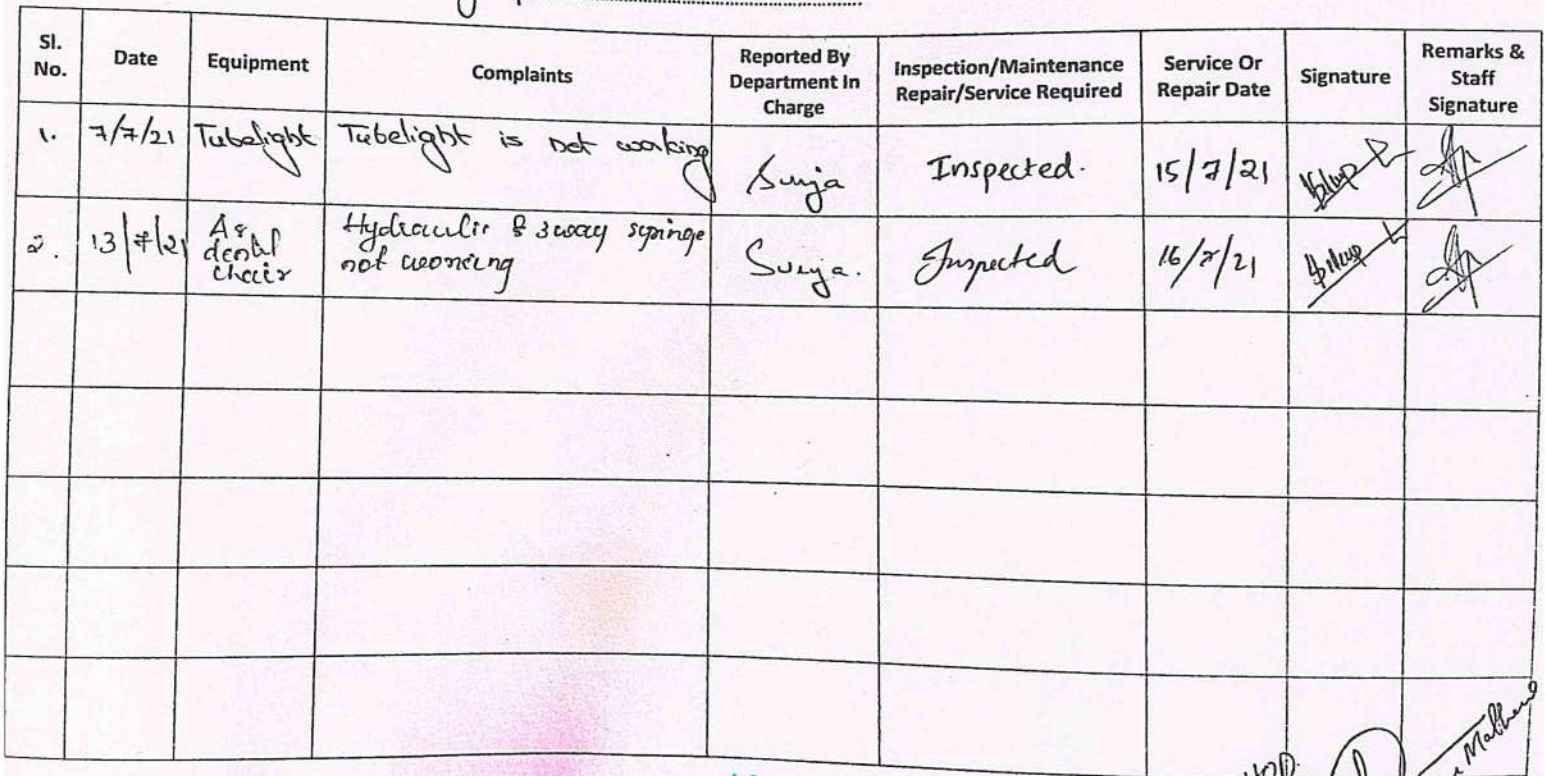 Sl. No. Date Equipment Complaints Reported By Department In Charge Inspection/Maintenance Repair/Service Required Service Or Repair Date Signature Remarks & Staff Signature
1. 7/7/21 Tubelight Tubelight is not working Surja Inspected. 15/7/21
2. 13/7/21 A8 dental chair Hydraulic & 3 way syringe not working Surja. Inspected 16/7/21
HOD.
Mathew